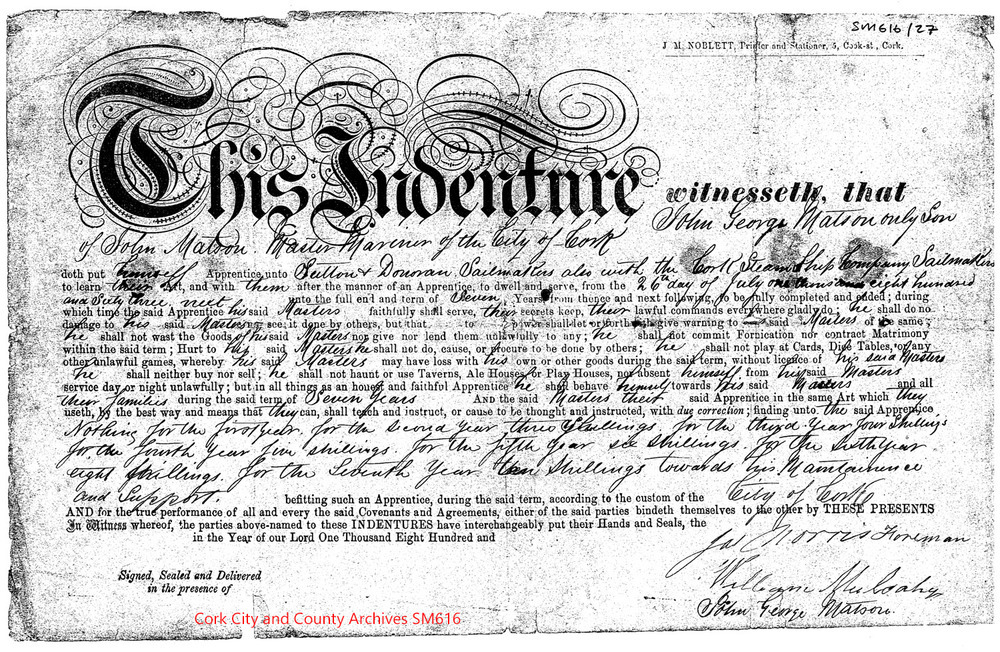 SM616/27
J. M. NOBLETT, Printer and Stationer, 5, Cook-st, Cork.
This Indenture witnesseth, that
John George Matson only Son
of John Matson Master Mariner of the City of Cork
doth put himself Apprentice unto Sutton & Donovan Sailmakers also with the Cork Steam Ship Company Sailmakers
to learn their Art, and with them after the manner of an Apprentice, to dwell and serve, from the 26th day of July one thousand eight hundred
and Sixty three next unto the full end and term of Seven Years from thence and next following, to be fully completed and ended; during
which time the said Apprentice his said Masters faithfully shall serve, their secrets keep, their lawful commands everywhere gladly do; he shall do no
damage to his said Masters nor see it done by others, but that to power shall let or forthwith give warning to said Masters of the same;
he shall not waste the Goods of his said Masters nor give nor lend them unlawfully to any; he shall not commit Fornication nor contract Matrimony
within the said term; Hurt to his said Masters he shall not do, cause, or procure to be done by others; he shall not play at Cards, Dice Tables, or any
other unlawful games, whereby his said Masters may have loss with his own or other goods during the said term, without licence of his said Masters
he shall neither buy nor sell; he shall not haunt or use Taverns, Ale Houses, or Play Houses, nor absent himself from his said Masters
service day or night unlawfully; but in all things as an honest and faithful Apprentice he shall behave himself towards his said Masters and all
their families during the said term of Seven Years And the said Masters their said Apprentice in the same Art which they
useth, by the best way and means that they can, shall teach and instruct, or cause to be thought and instructed, with due correction; finding unto the said Apprentice
Nothing for the first Year. for the Second Year three Shillings. for the third Year four Shillings
for the fourth Year five shillings. for the fifth Year six shillings. for the sixth Year
eight shillings. for the Seventh Year ten Shillings towards his Maintainence
and Support. befitting such an Apprentice, during the said term, according to the custom of the City of Cork
AND for the true performance of all and every the said Covenants and Agreements, either of the said parties bindeth themselves to the other by THESE PRESENTS
In Witness whereof, the parties above-named to these INDENTURES have interchangeably put their Hands and Seals, the
in the Year of our Lord One Thousand Eight Hundred and
Jas Norris Foreman
Signed, Sealed and Delivered
in the presence of
William Mulcahy
John George Matson.
Cork City and County Archives SM616